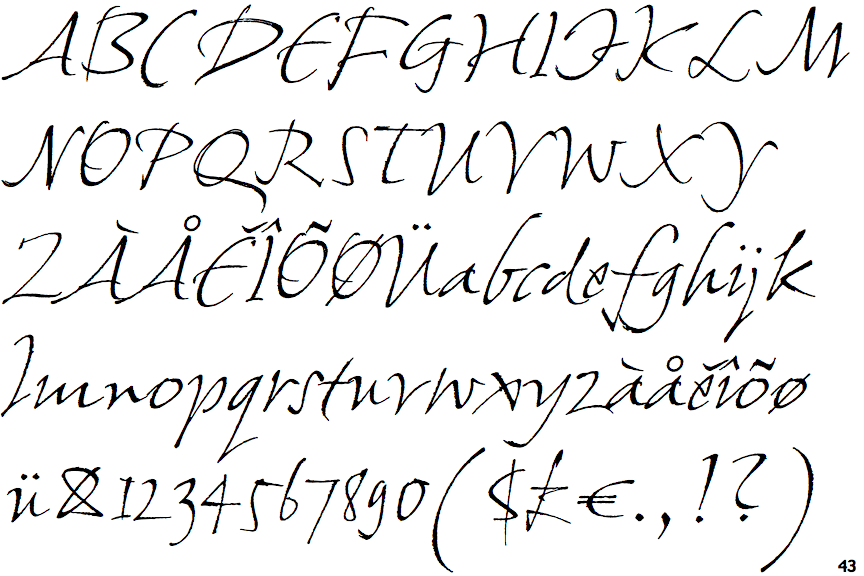 ABCDEFGHIJKLM
NOPQRSTUVWXY
ZÀÅĚÎÕØÜabcdefghijk
lmnopqrstuvwxyzàåěîõø
ü&1234567890($£€.,!?)
43